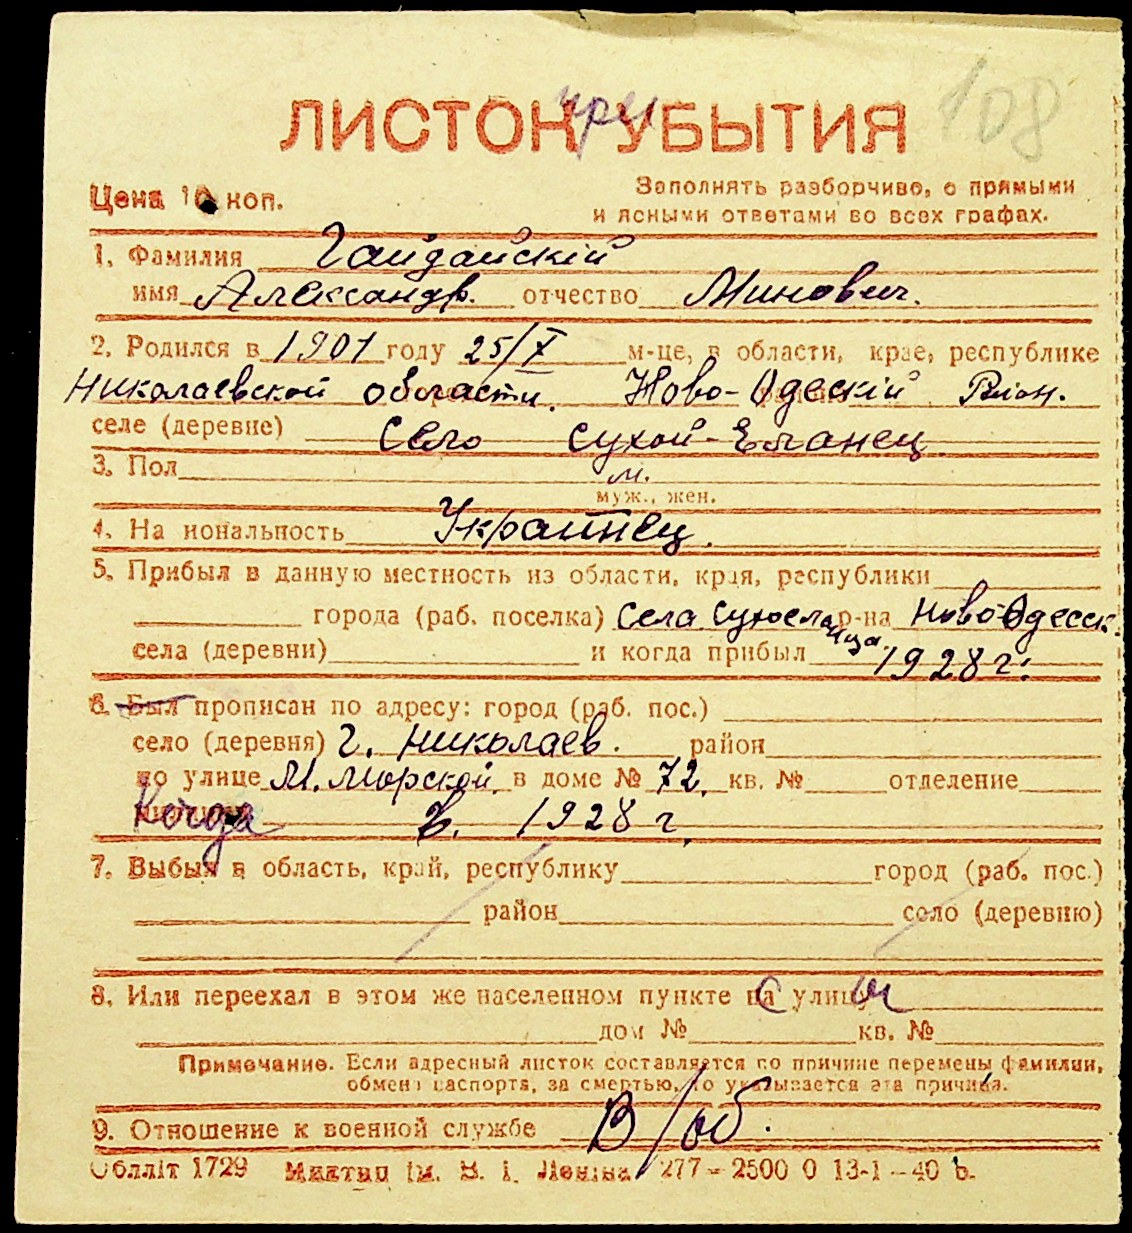 108
ЛИСТОК при УБЫТИЯ
Цена 10 коп.
Заполнять разборчиво, с прямыми
и ясными ответами во всех графах.
1. Фамилия Гайдайскій
имя Александр. отчество Минович.
2. Родился в 1901 году 25/X м-це, в области, крае, республике
Николаевской области. Ново-Одескій Район.
селе (деревне) село Сухой-Еланец
3. Пол м.
муж., жен.
4. Национальность Украинец.
5. Прибыл в данную местность из области, края, республики
города (раб. поселка) села Сухоеланца р-на Ново-Одесск.
села (деревни) и когда прибыл 1928 г.
6. Был прописан по адресу: город (раб. пос.)
село (деревня) г. Николаев. район
по улице М. Морской в доме № 72. кв. № отделение
Когда в. 1928 г.
7. Выбыл в область, край, республику город (раб. пос.)
район село (деревню)
8. Или переехал в этом же населенном пункте с улицы
дом № кв. №
Примечание. Если адресный листок составляется по причине перемены фамилии,
обмена паспорта, за смертью, то указывается эта причина.
9. Отношение к военной службе В/об.
Облліт 1729 Миктип Ім. В. І. Леніна 277 – 2500 0 13-1 – 40 Ь.